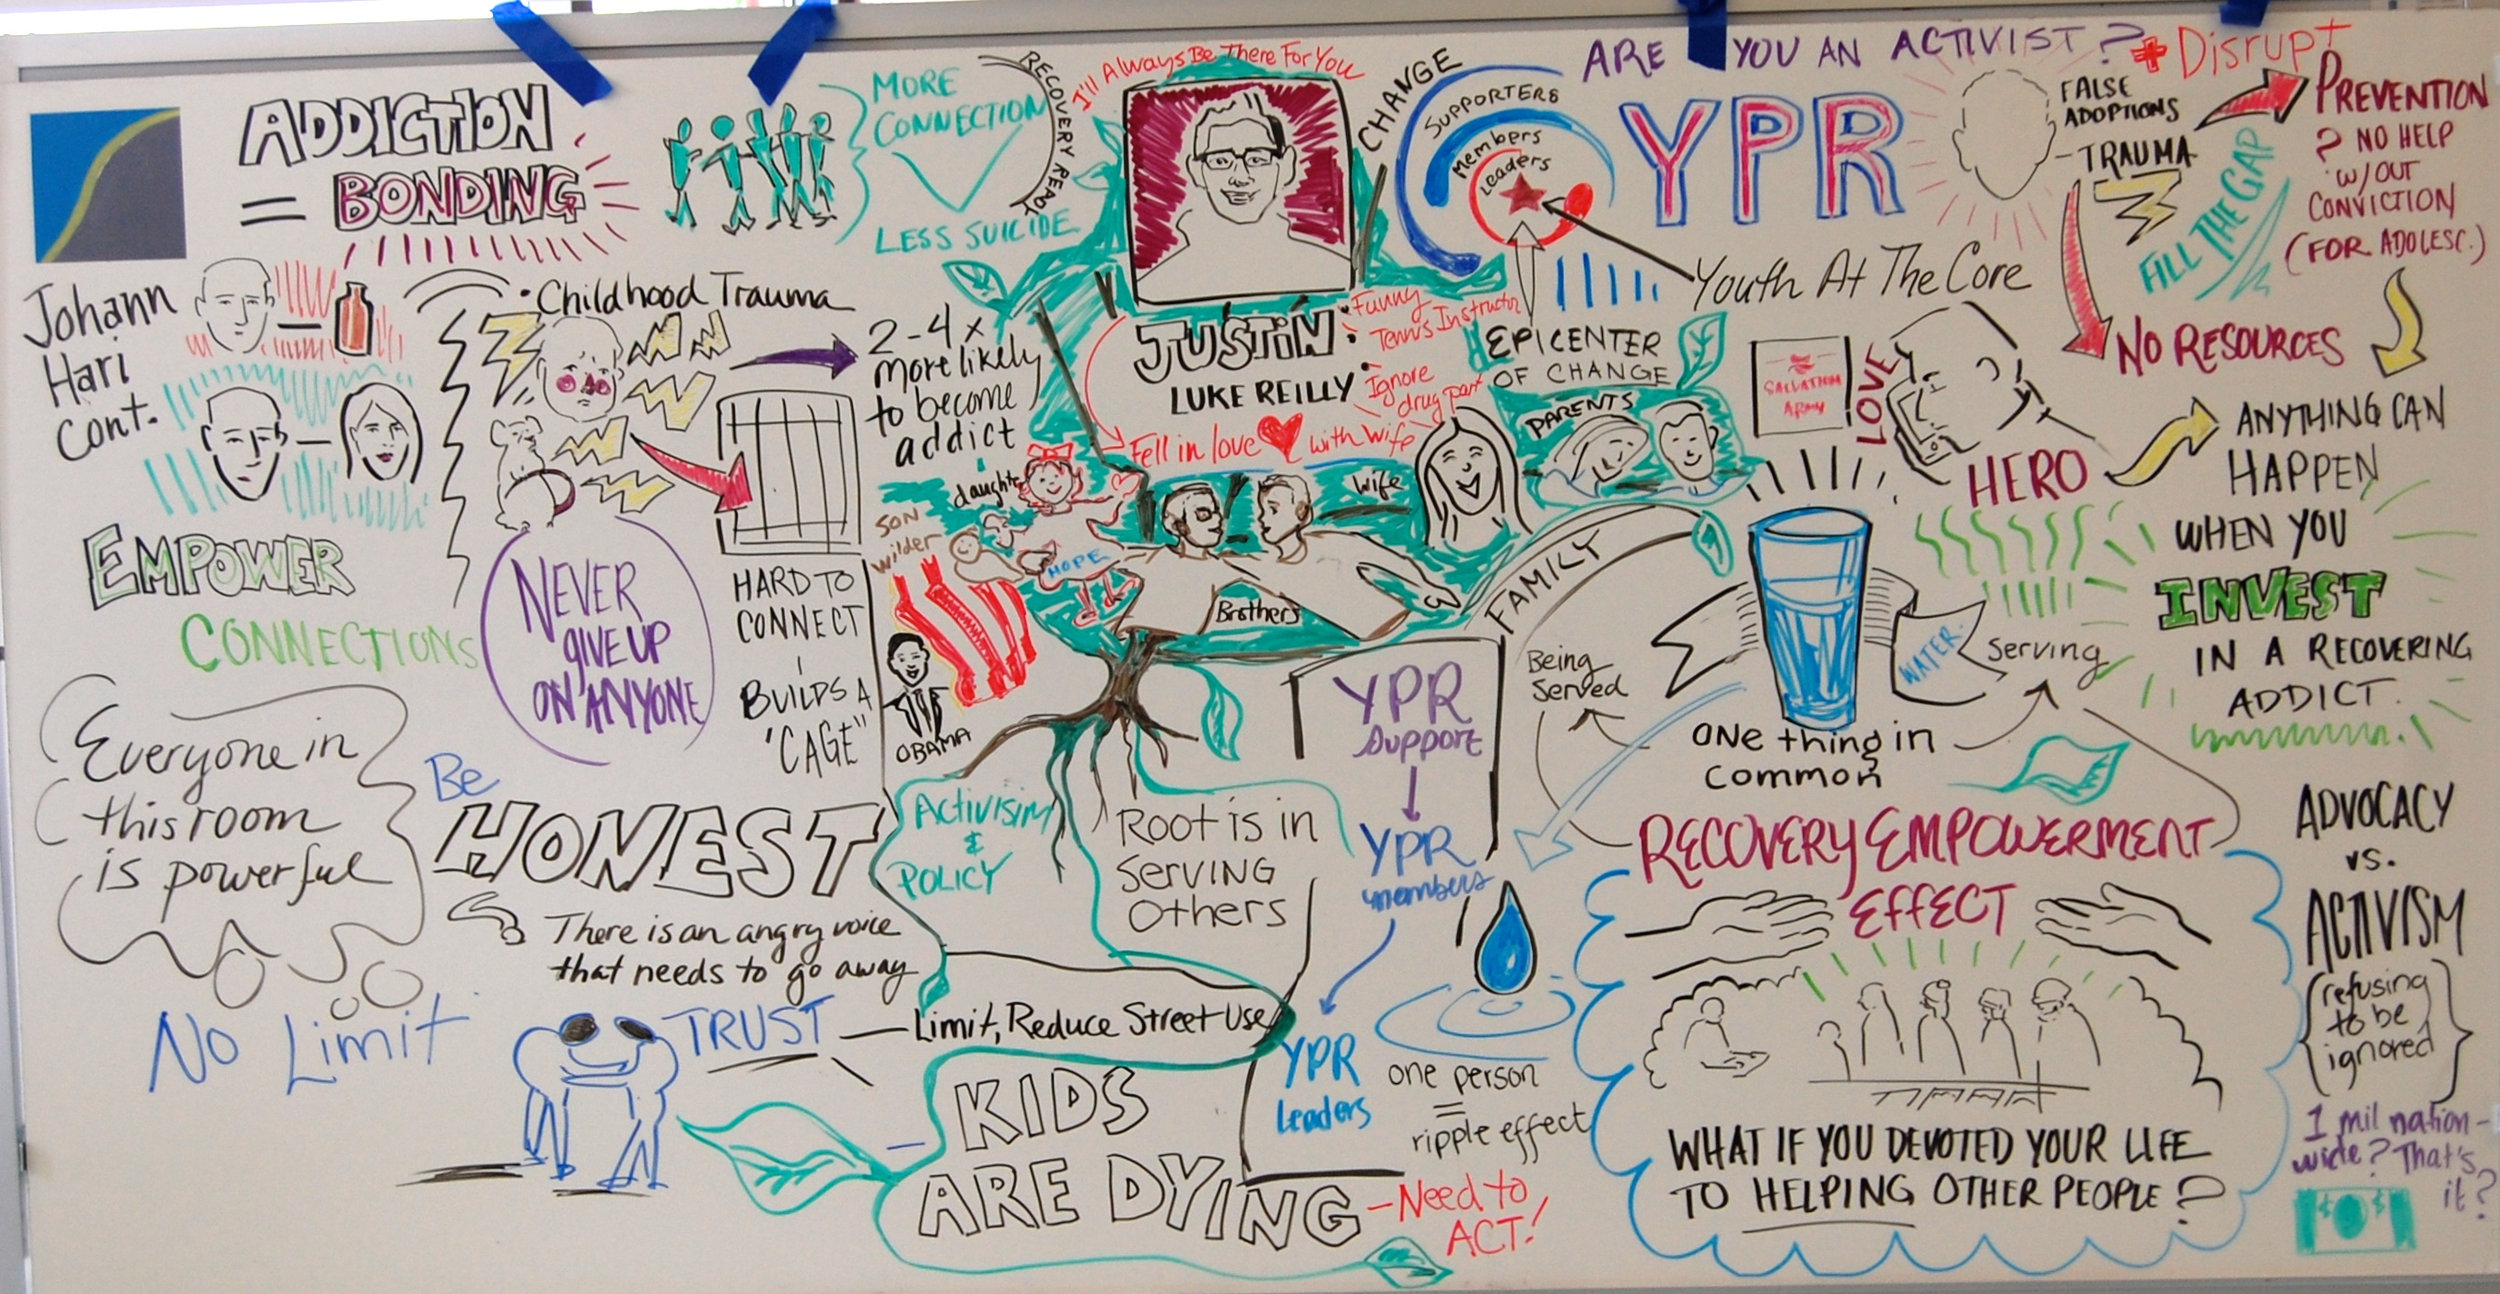 ADDICTION
= BONDING
Johann
Hari
cont.
EMPOWER
CONNECTIONS
Everyone in
this room
is powerful
No Limit
• Childhood Trauma
2-4x
more likely
to become
addict
NEVER
GIVE UP
ON ANYONE
HARD TO
CONNECT
BUILDS A
'CAGE"
Be
HONEST
There is an angry voice
that needs to go away
TRUST
Limit, Reduce Street Use
MORE
CONNECTION
LESS SUICIDE
RECOVERY READY
I'll Always Be There For You
CHANGE
JUSTIN:
LUKE REILLY
Funny
Tennis Instructor
Ignore
drug part
Fell in love with wife
daughter
SON
Wilder
HOPE
OBAMA
Brothers
Wife
PARENTS
FAMILY
EPICENTER
OF CHANGE
Activisim
&
POLICY
ROOT is in
SERVING
Others
KIDS
ARE DYING
- Need to
ACT!
YPR
Support
YPR
members
YPR
Leaders
one person
=
ripple effect
SUPPORTERS
Members
Leaders
ARE YOU AN ACTIVIST?
+ Disrupt
YPR
Youth At The Core
FALSE
ADOPTIONS
- TRAUMA
FILL THE GAP
PREVENTION
? NO HELP
W/OUT
CONVICTION
(FOR ADOLESC.)
NO RESOURCES
SALVATION
ARMY
LOVE
HERO
ANYTHING CAN
HAPPEN
WHEN YOU
INVEST
IN A RECOVERING
ADDICT.
Being
Served
WATER
Serving
ONE thing in
common
RECOVERY EMPOWERMENT
EFFECT
WHAT IF YOU DEVOTED YOUR LIFE
TO HELPING OTHER PEOPLE?
ADVOCACY
vs.
ACTIVISM
{refusing
to be
ignored}
1 mil nation-
wide? That's
it?
$ $